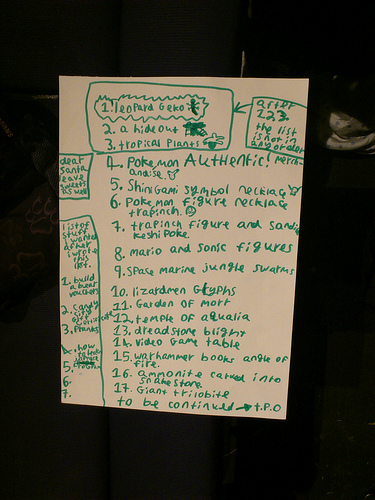 1. leopard Geko
2. a hideout
3. tropical Plants
after
1,2,3,
the list
is not in
any order
dear
santa
leave
sweets
as well
4. Pokemon AUtHentic! merch-
andise.
5. Shinigami symbol necklace
6. Pokemon figure necklace
trapinch.
7. trapinch figure and sandi
keshi Poke.
8. mario and sonic figures
9. space marine jungle swarms
10. lizardmen GLyphs
11. Garden of morr
12. temple of aqualia
13. dreadstone blight
14. video Game table
15. warhammer books angle of
fire.
16. ammonite carved into
snakestone.
17. Giant trilobite
to be continued → t.P.O
list of
stuff i
wanted
after
i wrote
this
list.
1. build
a bear
vouchers
2. Candy
gift
certificate
3. Plants
4. how
to teach
5.
6.
7.